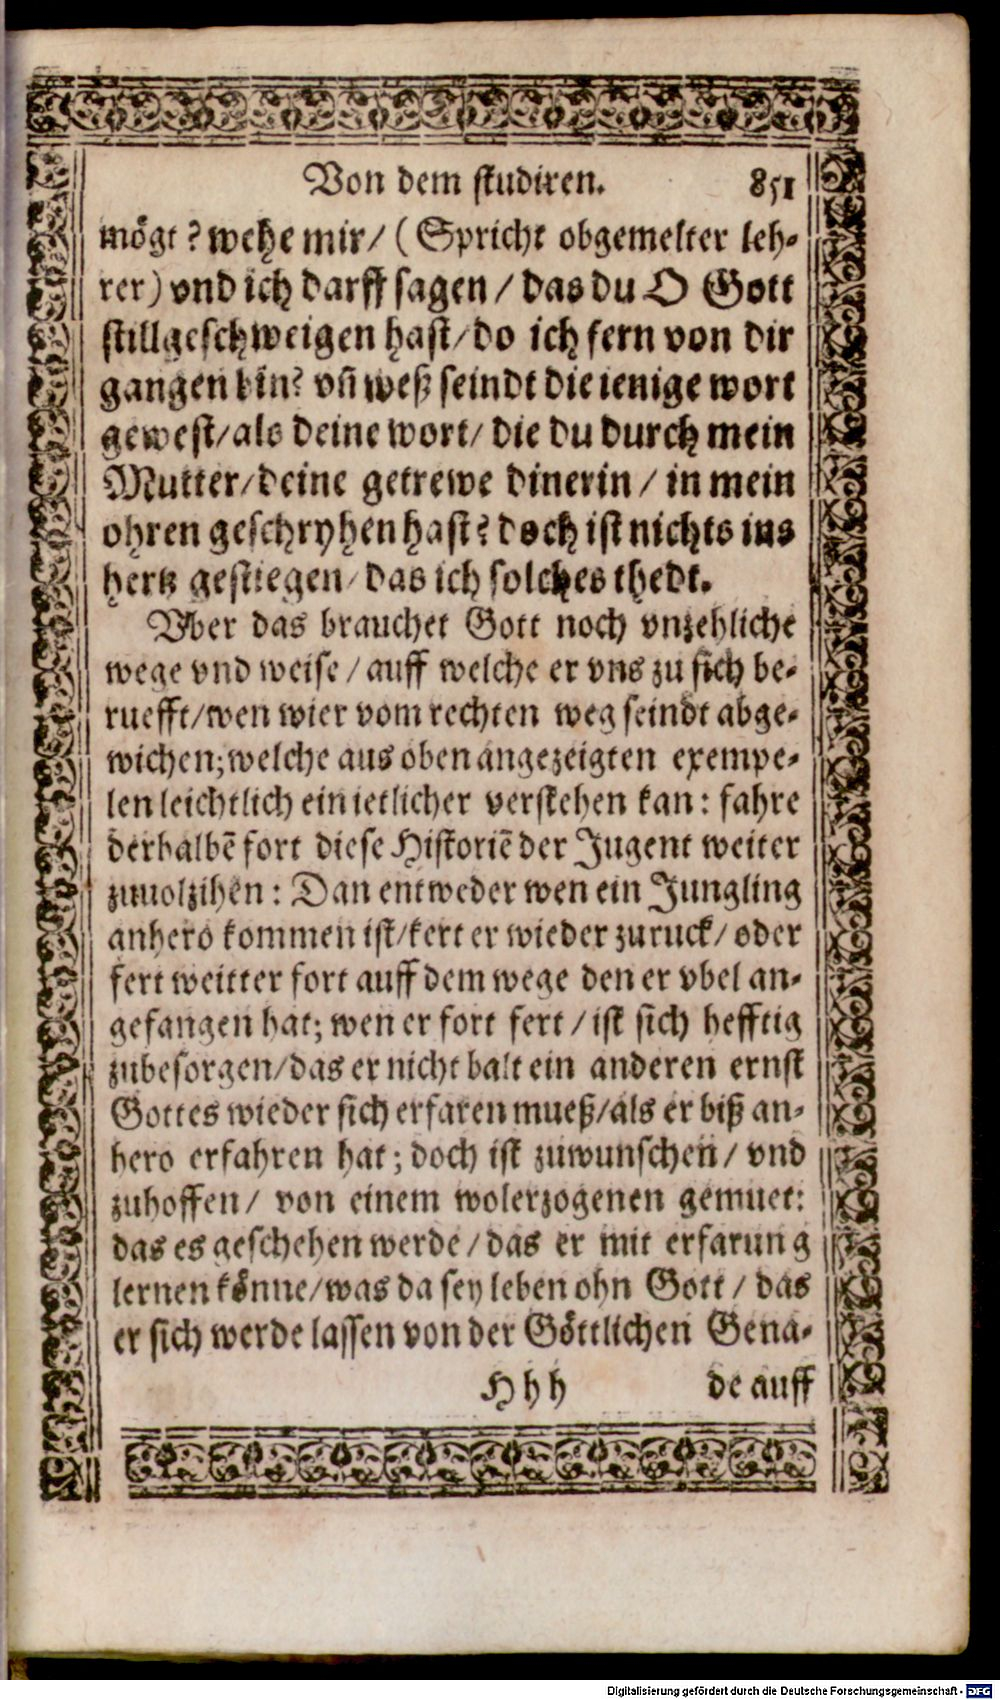 Von dem studiren. 851
mögt? wehe mir/ (Spricht obgemelter leh-
rer) vnd ich darff sagen / das du O Gott
stillgeschweigen hast/ do ich fern von dir
gangen bin? vñ weß seindt die ienige wort
gewest/ als deine wort/ die du durch mein
Mutter/ deine getrewe dinerin / in mein
ohren geschryhen hast? doch ist nichts ins
hertz gestiegen/ das ich solches thedt.
Vber das brauchet Gott noch vnzehliche
wege vnd weise / auff welche er vns zu sich be-
ruefft/ wen wier vom rechten weg seindt abge-
wichen; welche aus oben angezeigten exempe-
len leichtlich ein ietlicher verstehen kan: fahre
derhalbẽ fort diese Historiẽ der Jugent weiter
zuuolzihen: Dan entweder wen ein Jungling
anhero kommen ist/ kert er wieder zuruck/ oder
fert weitter fort auff dem wege den er vbel an-
gefangen hat; wen er fort fert / ist sich hefftig
zubesorgen/ das er nicht balt ein anderen ernst
Gottes wieder sich erfaren mueß/ als er biß an-
hero erfahren hat; doch ist zuwunschen/ vnd
zuhoffen/ von einem wolerzogenen gemuet:
das es geschehen werde / das er mit erfarung
lernen könne/ was da sey leben ohn Gott / das
er sich werde lassen von der Göttlichen Gena-
Hhh de auff
Digitalisierung gefördert durch die Deutsche Forschungsgemeinschaft - DFG